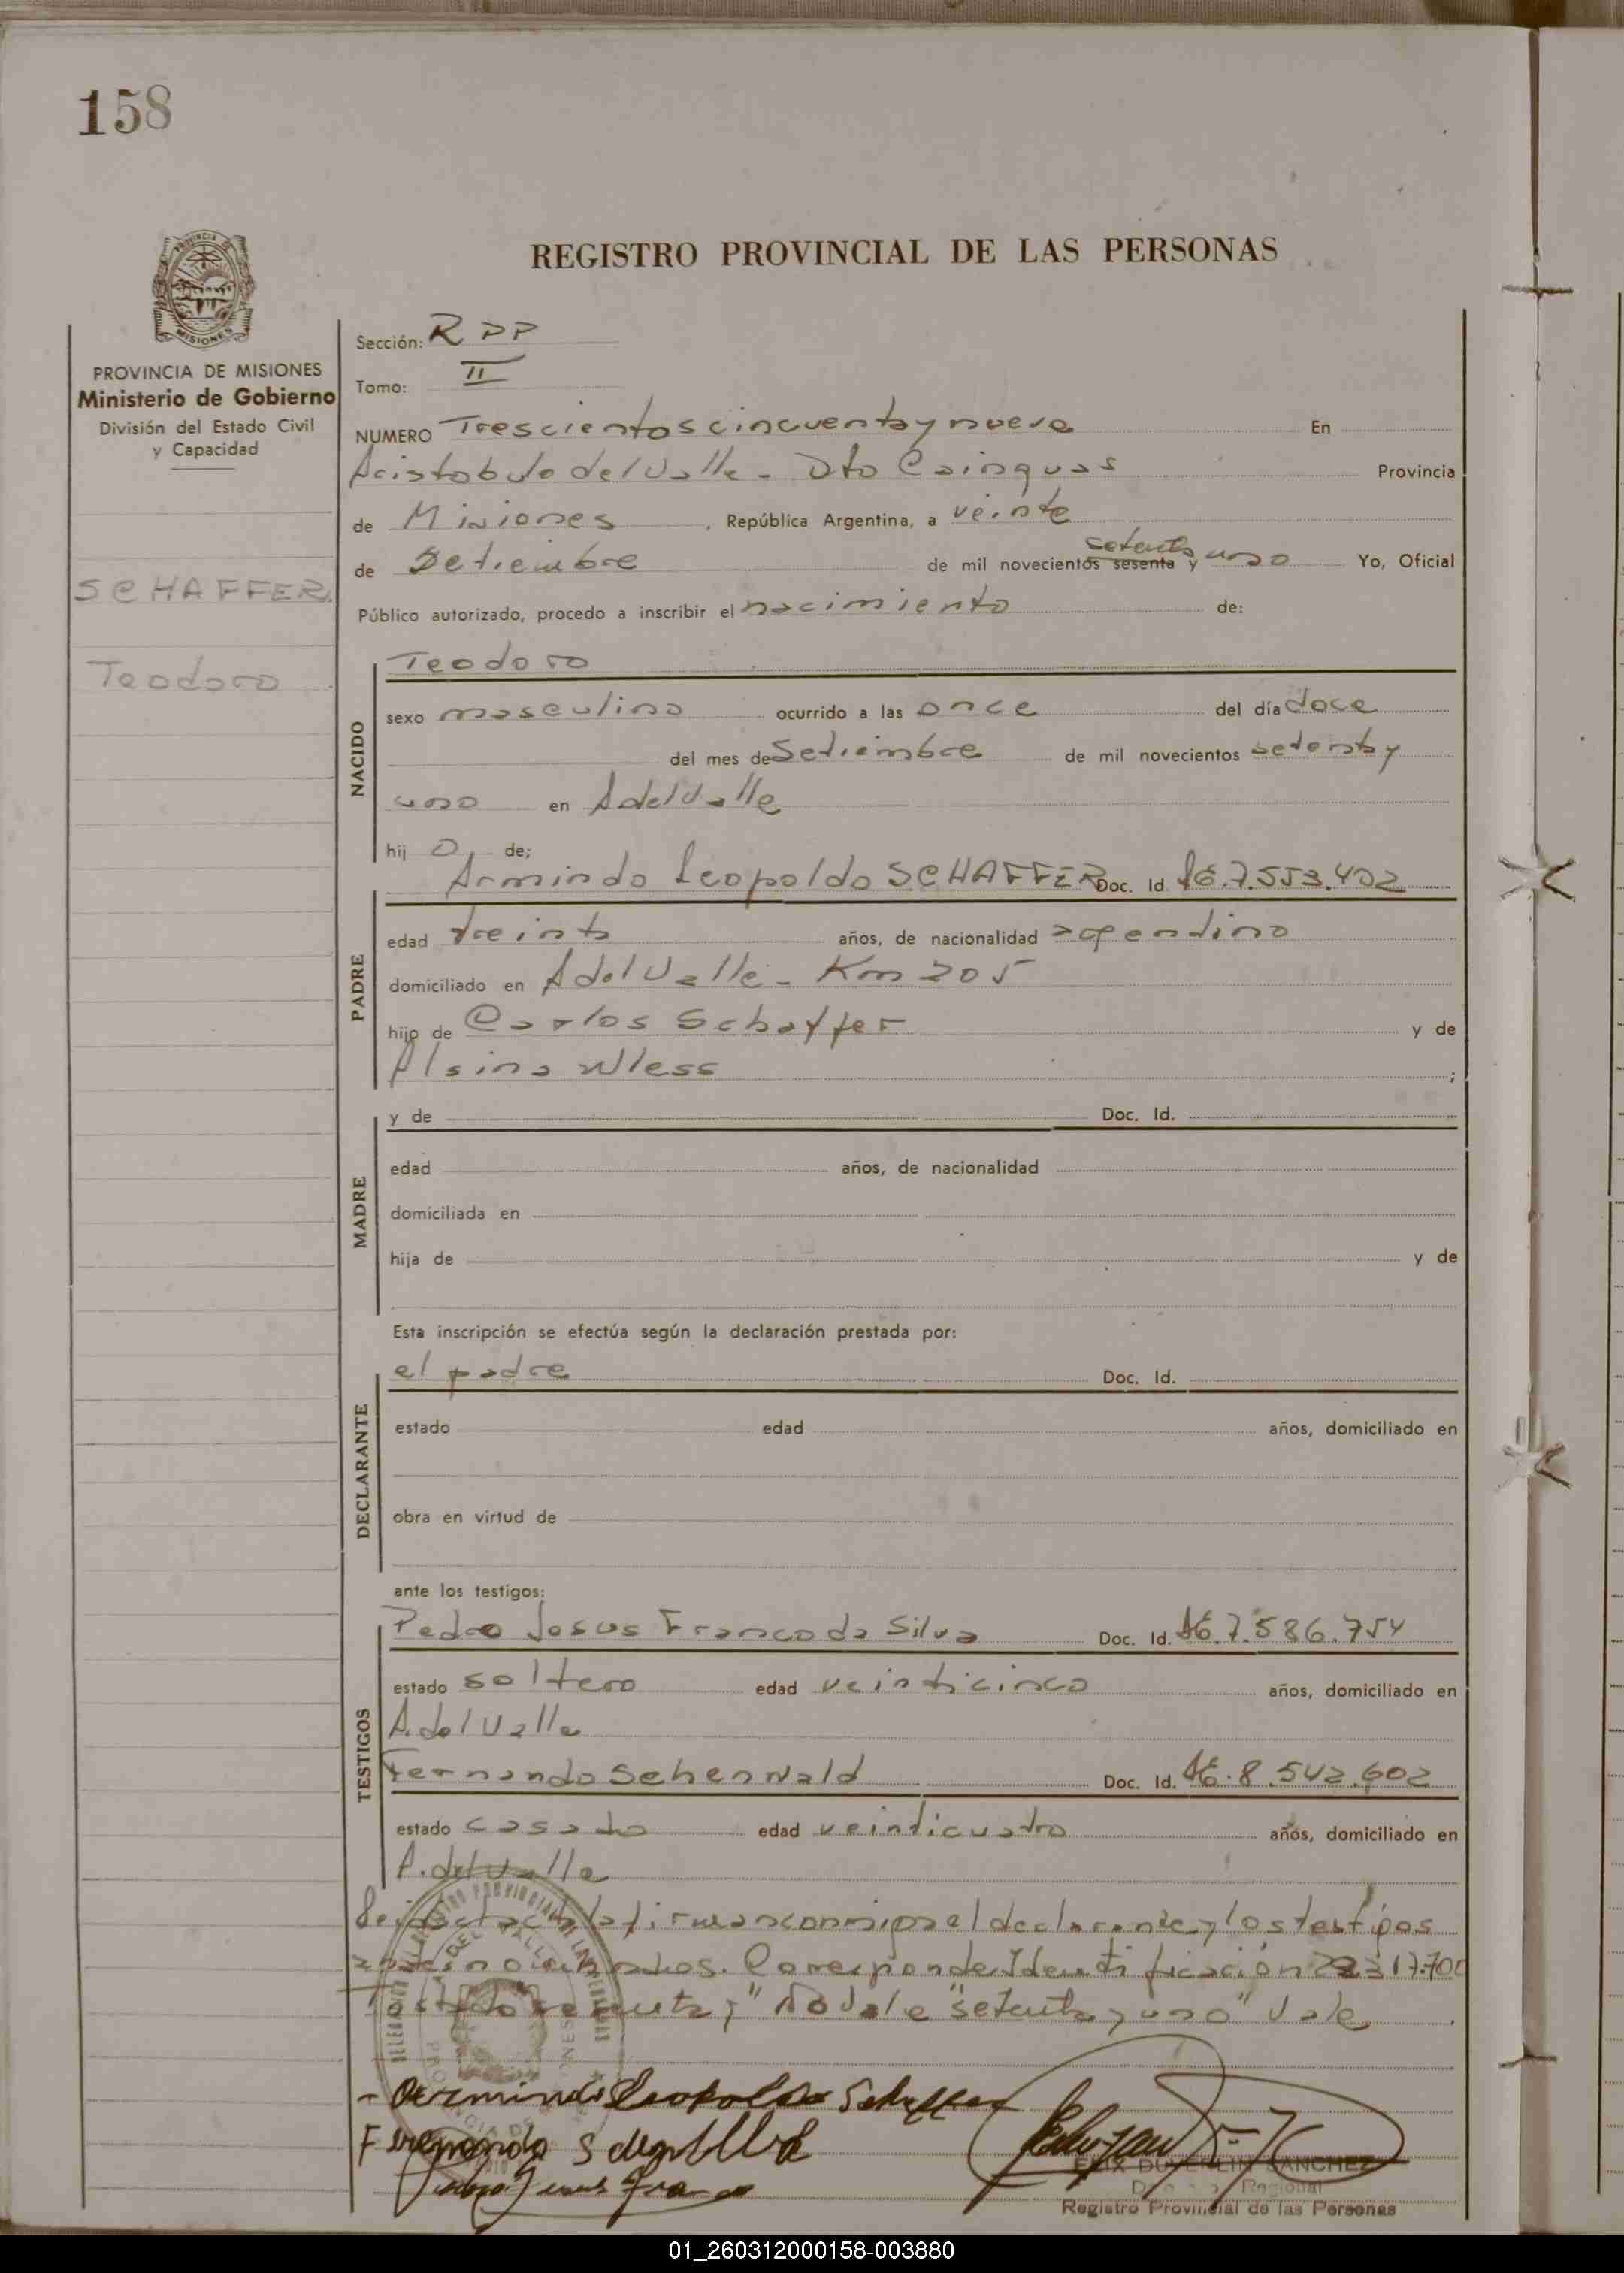 158
PROVINCIA DE MISIONES
Ministerio de Gobierno
División del Estado Civil
y Capacidad
SCHAFFER
Teodoro
REGISTRO PROVINCIAL DE LAS PERSONAS
Sección: RPP
Tomo: II
NUMERO Trescientos cincuenta y nueve En
Aristobulo del Valle - Dto Cainguas Provincia
de Misiones, República Argentina, a veinte
de Setiembre de mil novecientos sesenta y setenta uno Yo, Oficial
Público autorizado, procedo a inscribir el nacimiento de:
NACIDO
Teodoro
sexo masculino ocurrido a las once del día doce
del mes de Setiembre de mil novecientos setenta y
uno en A del Valle
hij o de;
PADRE
Armindo Leopoldo SCHAFFER Doc. Id. 7.553.402
edad treinta años, de nacionalidad argentino
domiciliado en A del Valle - Km 205
hijo de Carlos Schaffer y de
Alsina Wless ;
MADRE
y de Doc. Id.
edad años, de nacionalidad
domiciliada en
hija de y de
Esta inscripción se efectúa según la declaración prestada por:
DECLARANTE
el padre Doc. Id.
estado edad años, domiciliado en
obra en virtud de
ante los testigos:
TESTIGOS
Pedro Jesus Franco da Silva Doc. Id. 7.586.754
estado soltero edad veinticinco años, domiciliado en
A. del Valle
Fernando Schenwald Doc. Id. 8.542.602
estado casado edad veinticuatro años, domiciliado en
A. del Valle
acta la firman conmigo el declarante y los testigos
Corresponde Identificación 22317.700
y" No vale "setenta y uno" Vale
Armindo Leopoldo Schaffer
Fernando
Jesus Franco
FELIX DUVERLIN SANCHEZ
Regional
Registro Provincial de las Personas
01_260312000158-003880